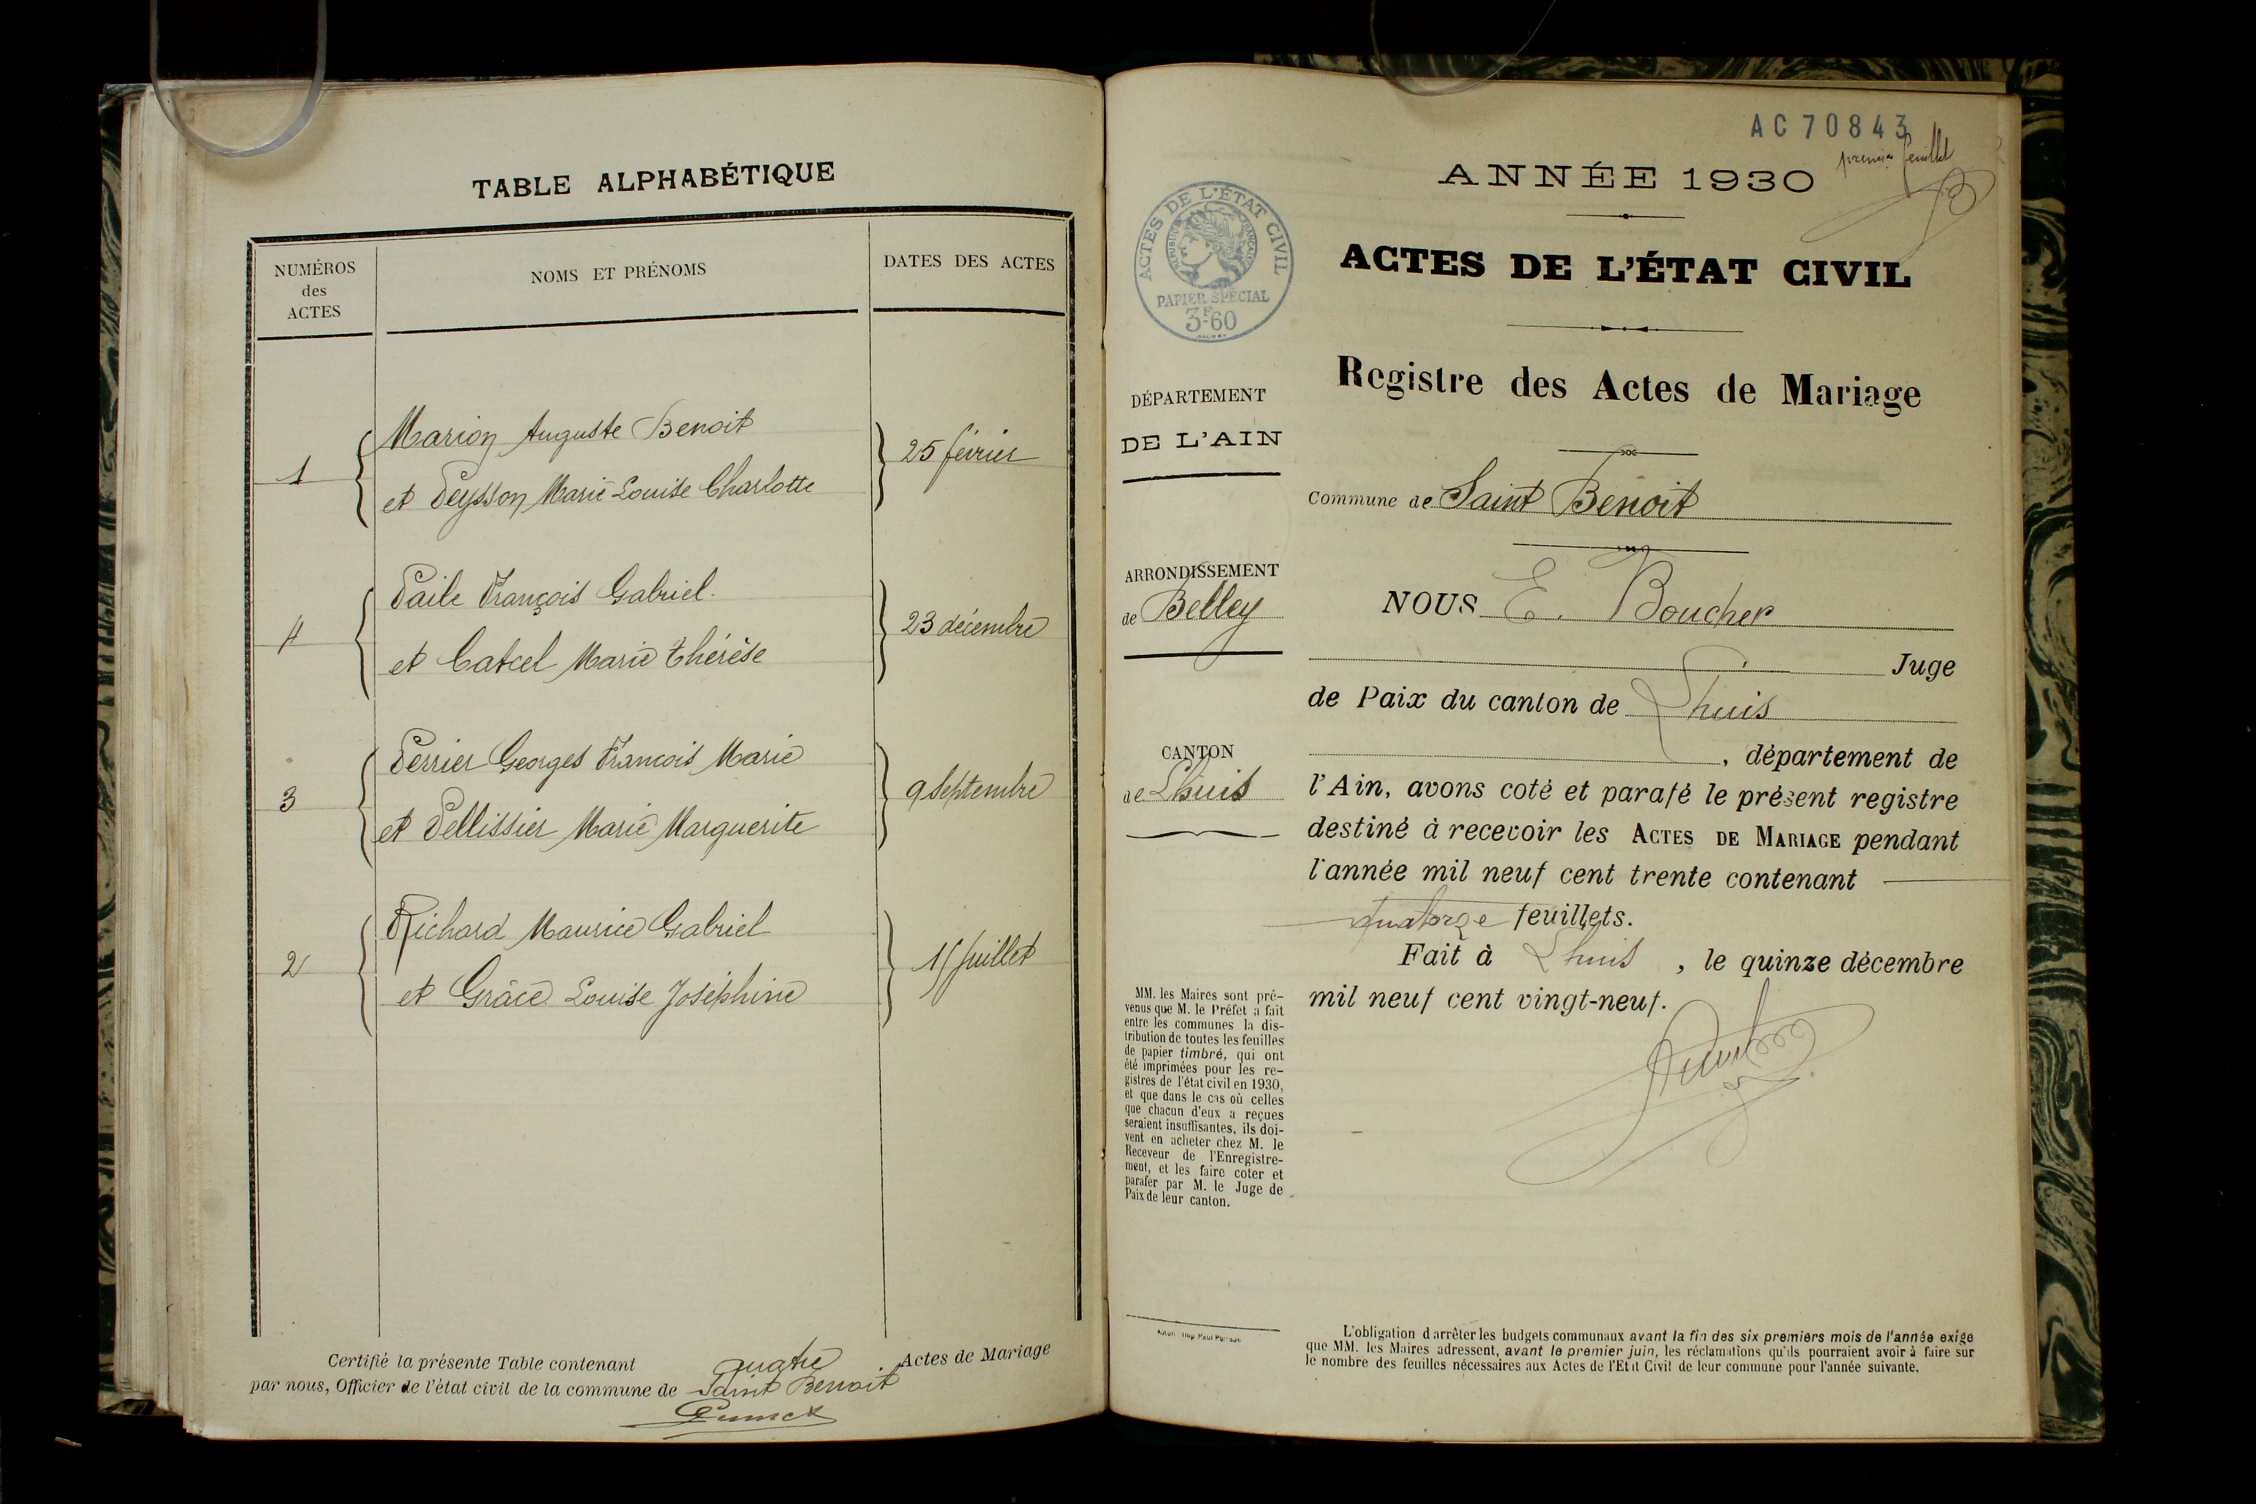 TABLE ALPHABÉTIQUE
NUMÉROS
des
ACTES
NOMS ET PRÉNOMS
DATES DES ACTES
1
Marion Auguste Benoit
et Peysson Marie Louise Charlotte
25 février
4
Paile François Gabriel
et Catcel Marie Thérèse
23 décembre
3
Perrier Georges François Marie
et Pellissier Marie Marguerite
9 septembre
2
Richard Maurice Gabriel
et Grâce Louise Joséphine
Juillet
Certifié la présente Table contenant quatre Actes de Mariage
par nous, Officier de l'état civil de la commune de Saint Benoit
AC 70843
premier feuillet
ANNÉE 1930
ACTES DE L'ÉTAT CIVIL
RÉPUBLIQUE FRANÇAISE
PAPIER SPÉCIAL
3F60
ACTES DE L'ÉTAT CIVIL
Registre des Actes de Mariage
DÉPARTEMENT
DE L'AIN
Commune de Saint Benoit
ARRONDISSEMENT
de Belley
NOUS E. Boucher
Juge
de Paix du canton de Lhuis
CANTON
de Lhuis
, département de
l'Ain, avons coté et parafé le présent registre
destiné à recevoir les ACTES DE MARIAGE pendant
l'année mil neuf cent trente contenant
quatorze feuillets.
Fait à Lhuis, le quinze décembre
mil neuf cent vingt-neuf.
MM. les Maires sont pré-
venus que M. le Préfet a fait
entre les communes la dis-
tribution de toutes les feuilles
de papier timbré, qui ont
été imprimées pour les re-
gistres de l'état civil en 1930,
et que dans le cas où celles
que chacun d'eux a reçues
seraient insuffisantes, ils doi-
vent en acheter chez M. le
Receveur de l'Enregistre-
ment, et les faire coter et
parafer par M. le Juge de
Paix de leur canton.
L'obligation d'arrêter les budgets communaux avant la fin des six premiers mois de l'année exige
que MM. les Maires adressent, avant le premier juin, les réclamations qu'ils pourraient avoir à faire sur
le nombre des feuilles nécessaires aux Actes de l'Etat Civil de leur commune pour l'année suivante.